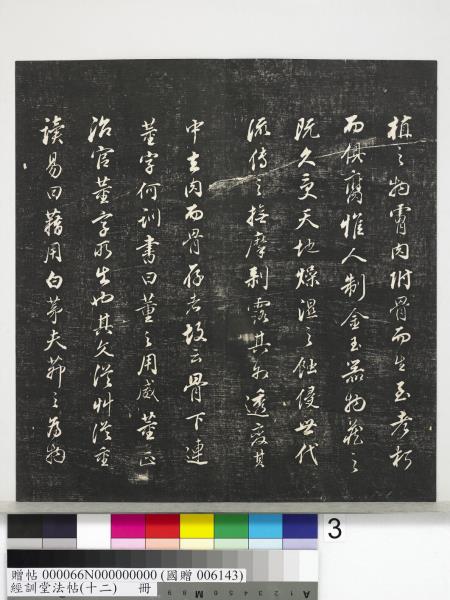 植之物肉附骨而生至老朽
而俱腐惟人制金玉器物藏之
既久更天地燥濕之蝕侵世代
流傳之撫摩剝露其外透變其
中去肉而骨存者故云骨下連
董字何訓書曰董之用威董正
治官董字所出也其文從艸從重
讀易曰藉用白茅夫茅之為物
3
贈帖 000066N000000000 (國贈 006143)
經訓堂法帖(十二) 冊